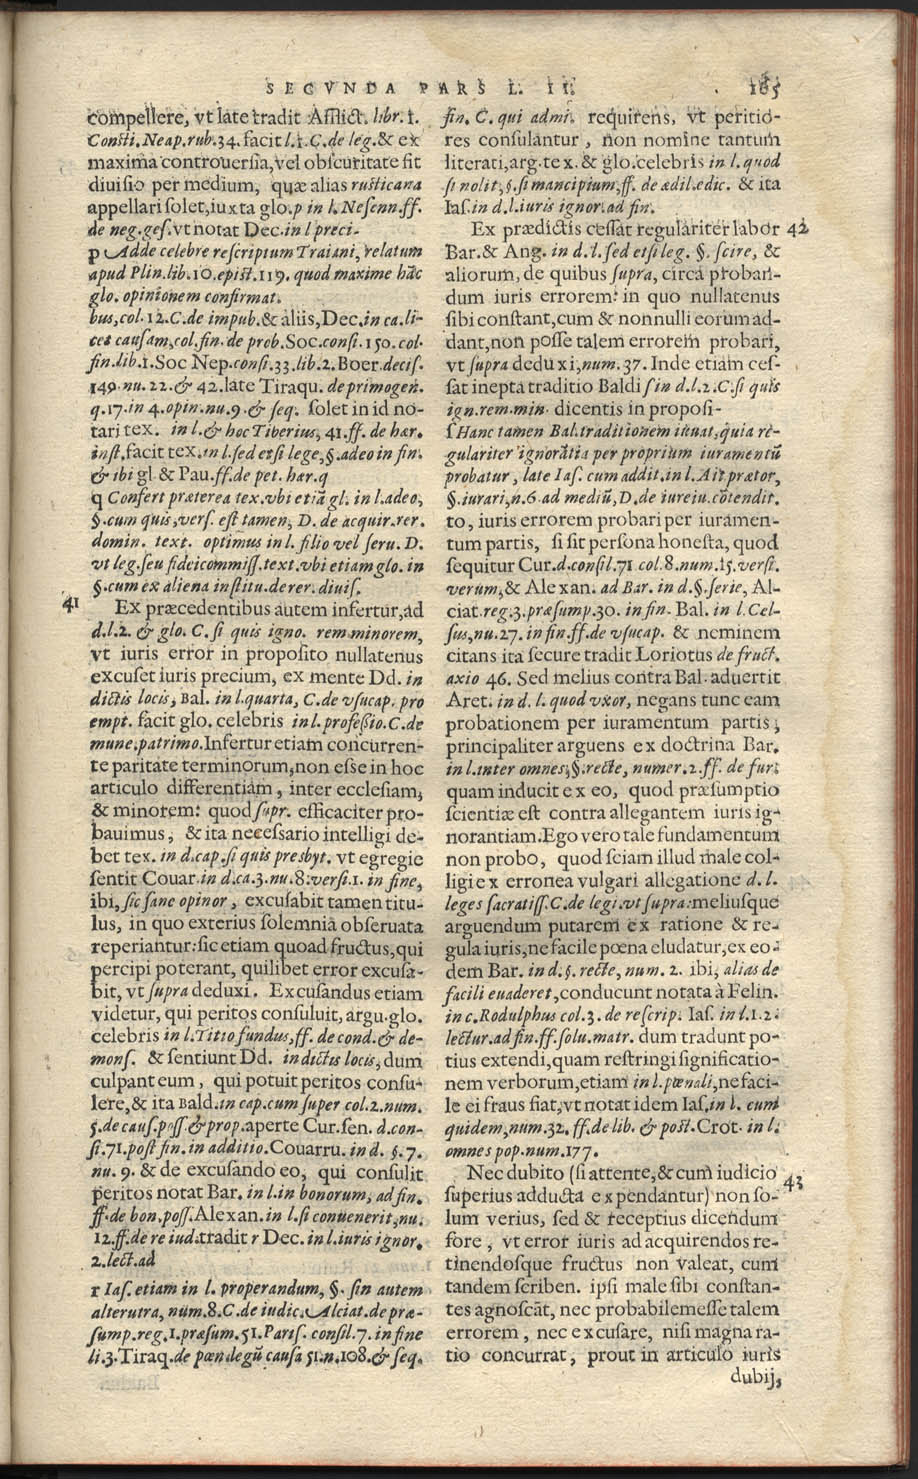 SECVNDA PARS L. II. 165
compellere, vt late tradit Afflict. libr. 1.
Consti. Neap. rub. 34. facit l. 1. C. de leg. & ex
maxima controuersia, vel obscuritate sit
diuisio per medium, quæ alias rusticana
appellari solet, iuxta glo. p in l. Nesenn. ff.
de neg. gest. vt notat Dec. in l preci-
p Adde celebre rescriptum Traiani, relatum
apud Plin. lib. 10. epist. 119. quod maxime hāc
glo. opinionem confirmat.
bus, col. 12. C. de impub. & aliis, Dec. in ca. li-
cet causam, col. fin. de prob. Soc. consi. 150. col.
fin. lib. 1. Soc Nep. consi. 33. lib. 2. Boer. decis.
149. nu. 22. & 42. late Tiraqu. de primogen.
q. 17. in 4. opin. nu. 9. & seq. solet in id no-
tari tex. in l. & hoc Tiberius, 41. ff. de hær.
inst. facit tex. in l. sed etsi lege, §. adeo in fin.
& ibi gl. & Pau. ff. de pet. hær. q
q Confert præterea tex. vbi etiā gl. in l. adeo,
§. cum quis, vers. est tamen, D. de acquir. rer.
domin. text. optimus in l. filio vel seru. D.
vt leg. seu fideicommiss. text. vbi etiam glo. in
§. cum ex aliena institu. de rer. diuis.
41 Ex præcedentibus autem infertur, ad
d. l. 2. & glo. C. si quis igno. rem minorem,
vt iuris error in proposito nullatenus
excuset iuris precium, ex mente Dd. in
dictis locis, Bal. in l. quarta, C. de vsucap. pro
empt. facit glo. celebris in l. professio. C. de
mune. patrimo. Infertur etiam concurren-
te paritate terminorum, non esse in hoc
articulo differentiam, inter ecclesiam,
& minorem: quod supr. efficaciter pro-
bauimus, & ita necessario intelligi de-
bet tex. in d. cap. si quis presbyt. vt egregie
sentit Couar. in d. ca. 3. nu. 8. versi. 1. in fine,
ibi, sic sane opinor, excusabit tamen titu-
lus, in quo exterius solemnia obseruata
reperiantur: sic etiam quoad fructus, qui
percipi poterant, quilibet error excusa-
bit, vt supra deduxi. Excusandus etiam
videtur, qui peritos consuluit, argu. glo.
celebris in l. Titio fundus, ff. de cond. & de-
mons. & sentiunt Dd. in dictis locis, dum
culpant eum, qui potuit peritos consu-
lere, & ita Bald. in cap. cum super col. 2. num.
5. de caus. poss. & prop. aperte Cur. sen. d. con-
si. 71. post fin. in additio. Couarru. in d. §. 7.
nu. 9. & de excusando eo, qui consulit
peritos notat Bar. in l. in bonorum, ad fin.
ff. de bon. poss. Alexan. in l. si conuenerit, nu.
12. ff. de re iud. tradit r Dec. in l. iuris ignor.
2. lect. ad
r Ias. etiam in l. properandum, §. sin autem
alterutra, num. 8. C. de iudic. Alciat. de præ-
sump. reg. 1. præsum. 51. Paris. consil. 7. in fine
li. 3. Tiraq. de pœn legū causa 51. n. 108. & seq.
fin. C. qui admi. requirens, vt peritio-
res consulantur, non nomine tantum
literati, arg. tex. & glo. celebris in l. quod
si nolit, §. si mancipium, ff. de ædil. edic. & ita
Ias. in d. l. iuris ignor. ad fin.
Ex prædictis cessat regulariter labor 42
Bar. & Ang. in d. l. sed etsi leg. §. scire, &
aliorum, de quibus supra, circa proban-
dum iuris errorem: in quo nullatenus
sibi constant, cum & nonnulli eorum ad-
dant, non posse talem errorem probari,
vt supra deduxi, num. 37. Inde etiam ces-
sat inepta traditio Baldi s in d. l. 2. C. si quis
ign. rem. min. dicentis in proposi-
s Hanc tamen Bal. traditionem iuuat, quia re-
gulariter ignorātia per proprium iuramentū
probatur, late Ias. cum addit. in l. Ait prætor,
§. iurari, n. 6. ad mediū, D. de iureiu. cōtendit.
to, iuris errorem probari per iuramen-
tum partis, si sit persona honesta, quod
sequitur Cur. d. consil. 71. col. 8. num. 15. versi.
verum, & Alexan. ad Bar. in d. §. serie, Al-
ciat. reg. 3. præsump. 30. in fin. Bal. in l. Cel-
sus, nu. 27. in fin. ff. de vsucap. & neminem
citans ita secure tradit Loriotus de fruct.
axio 46. Sed melius contra Bal. aduertit
Aret. in d. l. quod vxor, negans tunc eam
probationem per iuramentum partis,
principaliter arguens ex doctrina Bar.
in l. inter omnes, §. recte, numer. 2. ff. de fur.
quam inducit ex eo, quod præsumptio
scientiæ est contra allegantem iuris ig-
norantiam. Ego vero tale fundamentum
non probo, quod sciam illud male col-
ligi ex erronea vulgari allegatione d. l.
leges sacratiss. C. de legi. vt supra: meliusque
arguendum putarem ex ratione & re-
gula iuris, ne facile pœna eludatur, ex eo-
dem Bar. in d. §. recte, num. 2. ibi, alias de
facili euaderet, conducunt notata à Felin.
in c. Rodulphus col. 3. de rescrip. Ias. in l. 1. 2.
lectur. ad fin. ff. solu. matr. dum tradunt po-
tius extendi, quam restringi significatio-
nem verborum, etiam in l. pœnali, ne faci-
le ei fraus fiat, vt notat idem Ias. in l. cum
quidem, num. 32. ff. de lib. & post. Crot. in l.
omnes pop. num. 177.
Nec dubito (si attente, & cum iudicio 43
superius adducta expendantur) non so-
lum verius, sed & receptius dicendum
fore, vt error iuris ad acquirendos re-
tinendosque fructus non valeat, cum
tandem scriben. ipsi male sibi constan-
tes agnoscāt, nec probabilem esse talem
errorem, nec excusare, nisi magna ra-
tio concurrat, prout in articulo iuris
dubij,